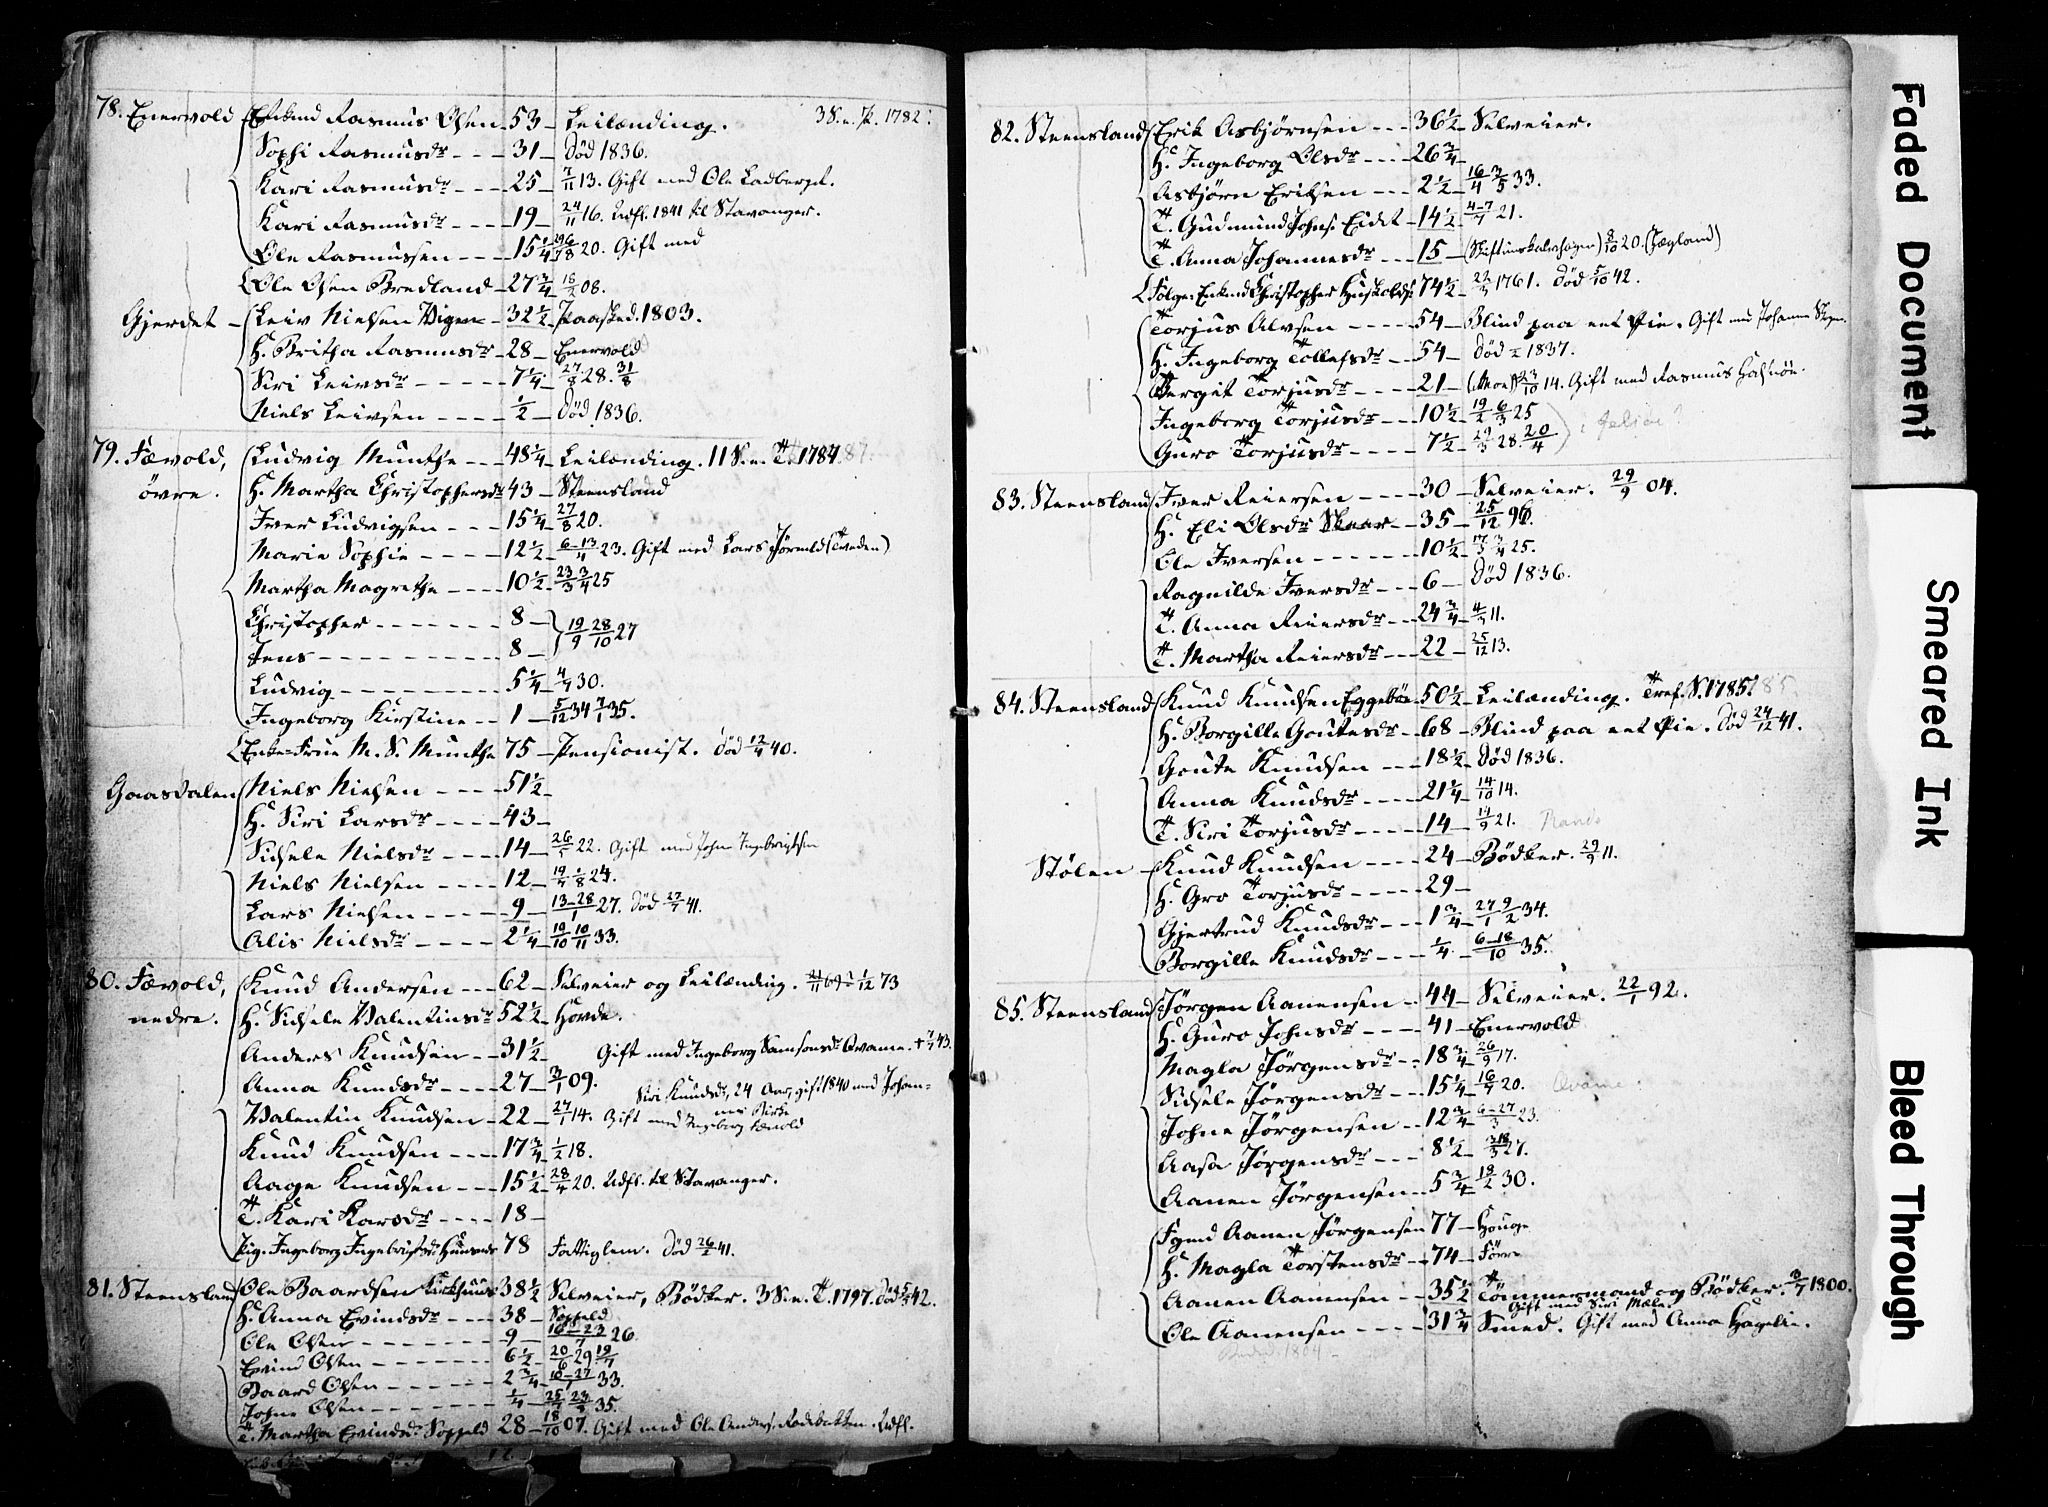 78. Enervold Enkmd Rasmus Olsen 53 Leilænding. 3 S. e. P. 1782.
Sophi Rasmusdr 31 Død 1836.
Kari Rasmusdr 25 7/11 13. Gift med Ole Ladberget.
Kari Rasmusdr 19 24/11 16. Udfl. 1841 til Stavanger.
Ole Rasmussen 15 1/4 20. Gift med
Ole Olsen Bredland 27 3/4 18/2 08.
Gjerdet Leiv Nielsen Vigen 32 1/2 Paasked. 1803.
H. Britha Rasmusdr 28 Enervold
Siri Leivsdr 7 1/4 27/8 28. 31/8
Niels Leivsen 1/2 Død 1836.
79. Fævold, Ludvig Munthe 48 1/4 Leilænding. 11 S. e. T. 1787
øvre. H. Martha Christophersdr 43 Steensland
Iver Ludvigsen 15 1/4 27/8 20.
Marie Sophie 12 1/2 6-13/11 23. Gift med Lars (Tveden)
Martha Magrethe 10 1/2 23/3 3/4 25
Christopher 8
19/9 28/10 27
Jens 8
Ludvig 5 1/4 30.
Ingeborg Kirstine 1 5/12 34 7/1 35.
Enke-Frue M. S. Munthe 75 Pensionist. død 12/4 40.
Gaasdalen Niels Nielsen 51 1/2
H. Siri Larsdr 43
Sidsele Nielsdr 14 22. Gift med John Ingebrigtsen
Niels Nielsen 12 24.
Lars Nielsen 9 13-28/1 27. Død 27/7 41.
Alis Nielsdr 2 1/4 19/10 10/11 33.
80. Fævold, Knud Andersen 62 Selveier og Leilænding. 1/12 73
nedre. H. Sidsele Valentinsdr 52 1/2 Hovde.
Anders Knudsen 31 1/2 Gift med Ingeborg Samsonsdr Qvame. + 7/7 43.
Anna Knudsdr 27 3/1 09. Siri Knudsdr, 24 Aar, gift 1840 med Johan-
Valentin Knudsen 22 27/1 14. Gift med Ingeborg Fævold
Knud Knudsen 17 3/4 1/2 18.
Aage Knudsen 15 1/2 28/4 20. Udfl. til Stavanger.
T. Kari Larsdr 18
Pig. Ingeborg Ingebrigtsdr 78 Fattiglem. Død 26/2 41.
81. Steensland Ole Baardsen Kirkhuus 38 1/2 Selveier, Bødker. 3 S. e. T. 1797. død 42.
H. Anna Evindsdr 38 Soppeld
Ole Olsen 9 16-23/7 26.
Evind Olsen 6 1/2 20/6 29 19/7
Baard Olsen 2 3/4 33.
Johne Olsen 1/4 35.
T. Martha Evindsdr Soppeld 28 18/10 07. Gift med Ole Anders. Udfl.
82. Steensland Erik Asbjørnsen 36 1/2 Selveier.
H. Ingeborg Olsdr 26 3/4
Asbjørn Eriksen 2 1/2 16/4 3/5 33.
T. Gudmund Johns. Eidet 14 1/2 4-7/7 21.
T. Anna Johannesdr 15 8/10 20. (Jægland)
Følge: Enkmd Christopher 74 1/2 1761. Død 5/10 42.
Torjus Alvsen 54 Blind paa eet Øie. Gift med Johanne
H. Ingeborg Tollefsdr 54 Død 1837.
Berget Torjusdr 21 14. Gift med Rasmus
Ingeborg Torjusdr 10 1/2 19/2 6/3 25
Guro Torjusdr 7 1/2 28. 20/4
83. Steensland Iver Reiersen 30 Selveier. 29/9 04.
H. Eli Olsdr Skaar 35 25/12
Ole Iversen 10 1/2 3/4 25.
Ragnilde Iversdr 6 Død 1836.
T. Anna Reiersdr 24 3/4 11.
T. Martha Reiersdr 22 25/12 13.
84. Steensland Knud Knudsen Eggebøe 50 1/2 Leilænding. Tref. S. 1785
H. Borgille Goutesdr 68 Blind paa eet Øie. Død 24/12 41.
Goute Knudsen 18 1/2 Død 1836.
Anna Knudsdr 21 1/4 14/10 14.
T. Siri Torjusdr 14 14/9 21.
Stølen Knud Knudsen 24 Bødker. 29/9 11.
H. Gro Torjusdr 29
Gjertrud Knudsdr 1 3/4 27/1 9/2 34.
Borgille Knudsdr 1/4 6-18/10 35.
85. Steensland Jørgen Aanensen 44 Selveier. 22/1 92.
H. Guro Johnsdr 41 Enervold
Magla Jørgensdr 18 3/4 26/9 17.
Sidsele Jørgensdr 15 1/4 16/7 20. Qvame
Johne Jørgensen 12 3/4 6-27/3 23.
Aasa Jørgensdr 8 1/2 27.
Aanen Jørgensen 5 3/4 19/2 30.
Fgmd Aanen Jørgensen 77 Houge
H. Magla Torstensdr 74 Førre
Aanen Aanensen 35 1/2 Tømmermand og Bødker. 1800.
Gift med Siri Mæle
Ole Aanensen 31 3/4 Smed. Gift med Anna Hagelin.
Faded Document
Smeared Ink
Bleed Through